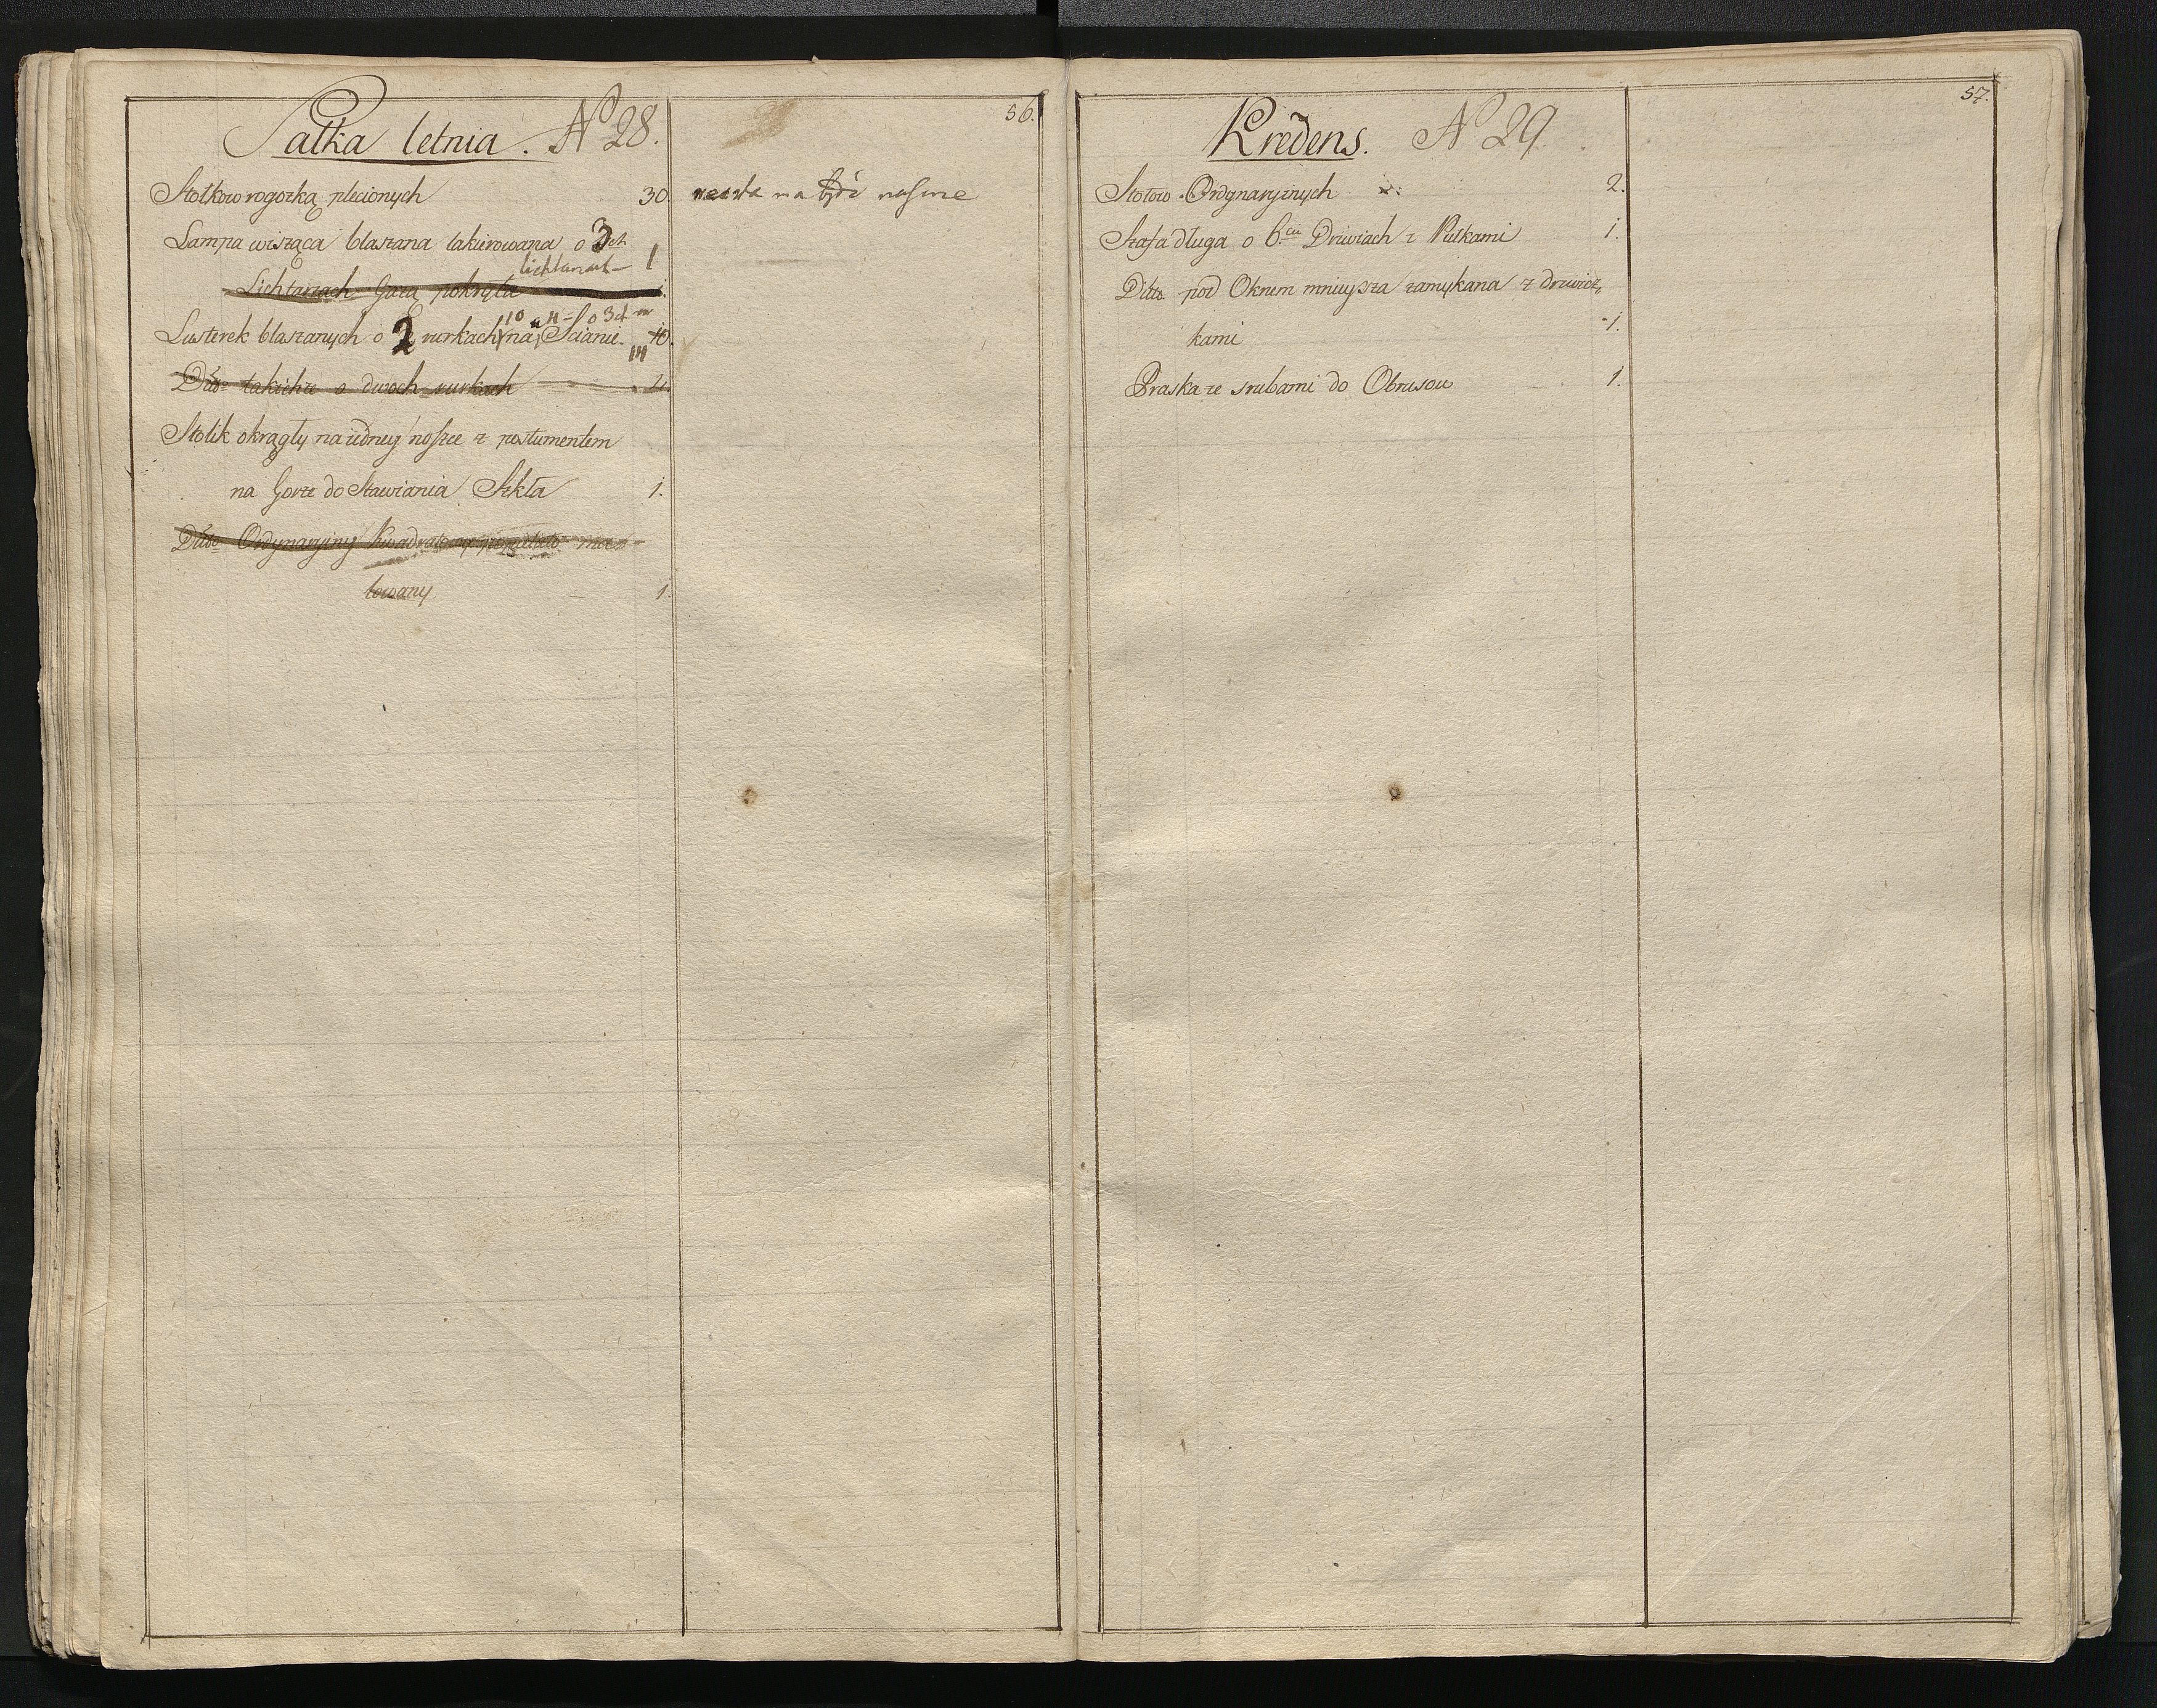 56.
Sałka letnia. N 28.
Stołkow rogożką plecionych 30
ma być
Lampa wisząca blaszana lakierowana o 3ch
lichtarzach 1
Lichtarzach Gazą pokryta 1.
10 a 4 o 3ch
Lusterek blaszanych o 2 rurkach na Scianie 10.
14
Ditto takichże o dwoch rurkach 4.
Stolik okrągły na iedney noszce z postumentem
na Gorze do Stawiania Szkła 1.
Ditto Ordynaryiny Kwadratowy malowany 1.
57.
Kredens. N 29
Stołow Ordynaryinych 2.
Szafa długa o 6ciu Drzwiach z Pułkami 1.
Ditto pod Oknem mnieysza zamykana z drzwicz,
kami 1.
Praska ze srubami do Obrusow 1.